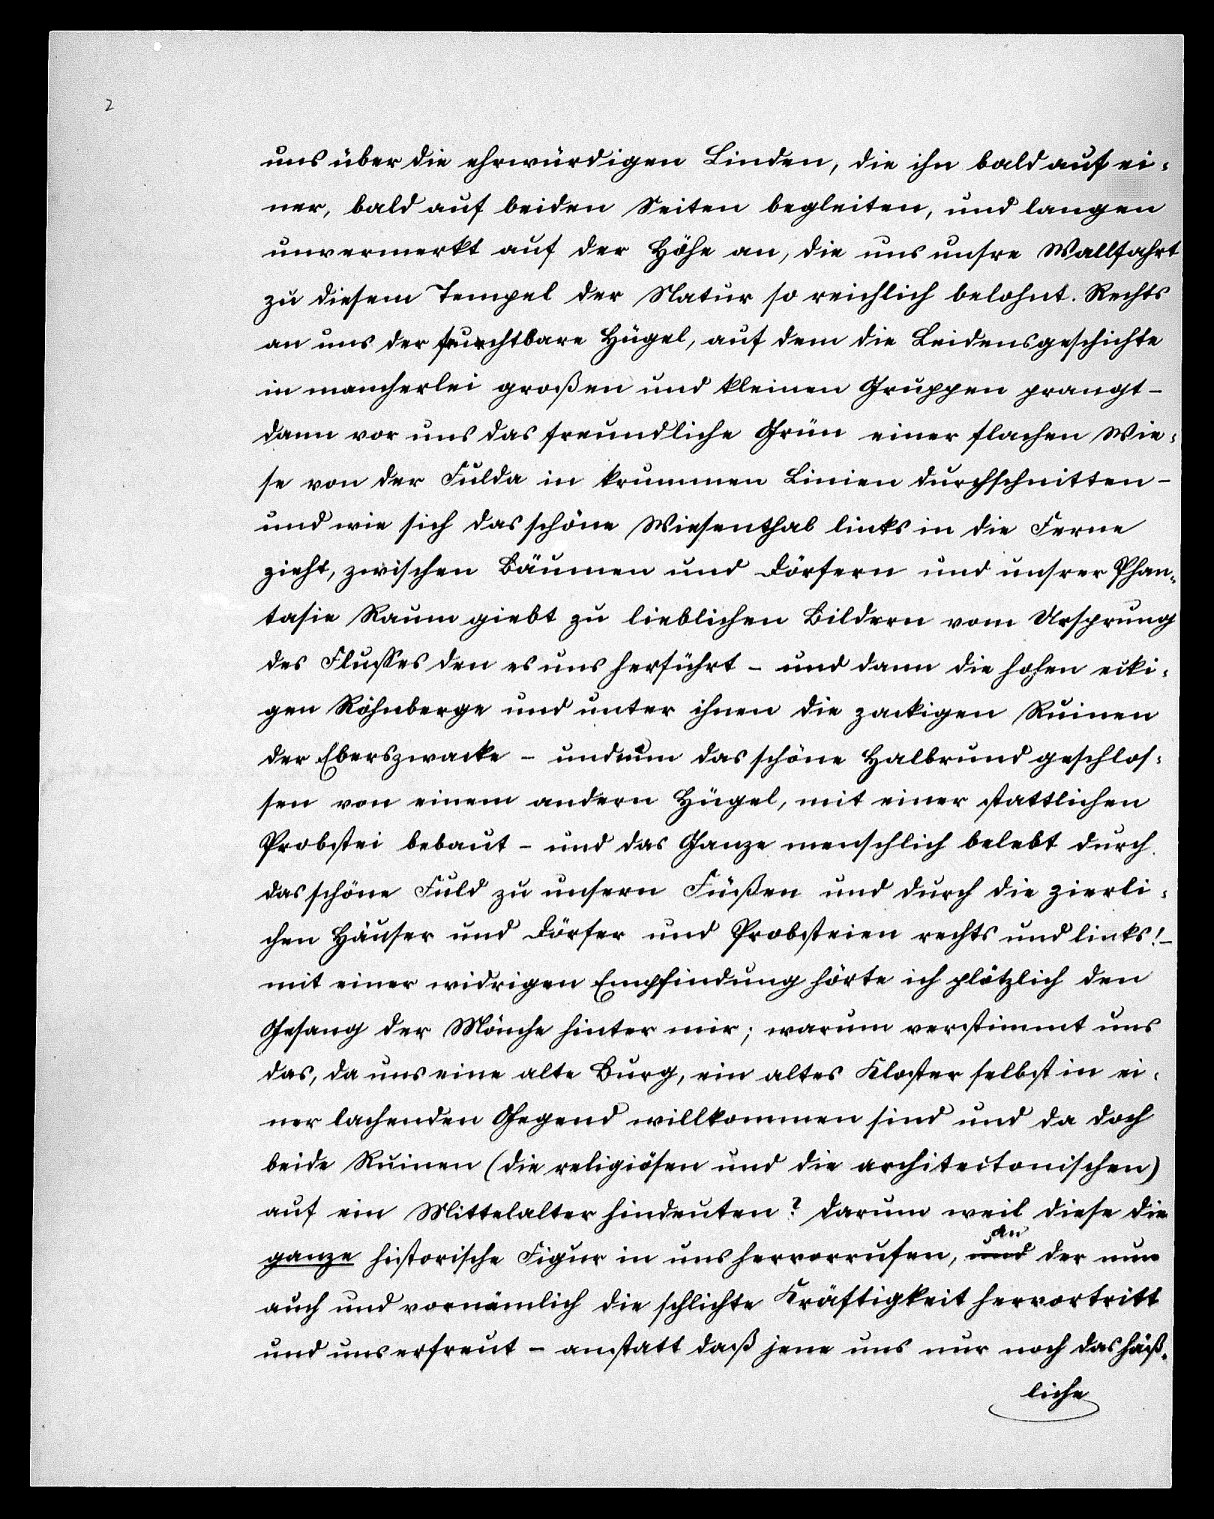 2
uns über die ehrwürdigen Linden, die ihn bald auf ei-
ner, bald auf beiden Seiten begleiten, und langen
unvermerkt auf der Höhe an, die uns unsre Wallfahrt
zu diesem Tempel der Natur so reichlich belohnt. Rechts
an uns der fruchtbare Hügel, auf dem die Leidensgeschichte
in mancherlei großen und kleinen Gruppen prangt –
dann vor uns das freundliche Grün einer flachen Wie-
se von der Fulda in krummen Linien durchschnitten –
und wie sich das schöne Wiesenthal links in die Ferne
zieht, zwischen Bäumen und Dörfern und unsrer Phan-
tasie Raum giebt zu lieblichen Bildern vom Ursprung
des Flusses den es uns herführt – und dann die hohen ecki-
gen Röhnberge und unter ihnen die zackigen Ruinen
der Eberszwacke – und nun das schöne Halbrund geschlos-
sen von einem andern Hügel, mit einer stattlichen
Probstei bebaut – und das Ganze menschlich belebt durch
das schöne Fuld zu unsern Füßen und durch die zierli-
chen Häuser und Dörfer und Probsteien rechts und links! –
mit einer widrigen Empfindung hörte ich plötzlich den
Gesang der Mönche hinter mir; warum verstimmt uns
das, da uns eine alte Burg, ein altes Kloster selbst in ei-
ner lachenden Gegend willkommen sind und da doch
beide Ruinen (die religiösen und die architectonischen)
auf ein Mittelalter hindeuten? darum weil diese die
ganze historische Figur in uns hervorrufen, und an der nun
auch und vornämlich die schlichte Kräftigkeit hervortritt
und uns erfreut – anstatt daß jene uns nur noch das häß-
liche